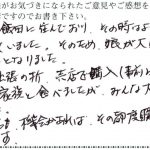 がお気づきになられたご意見やご感想を
ですのでお書き下さい。
飯田に住んでおり、その時は
いました。そのため、娘が
となりました。
出張の折、売店で購入(事前に
家族で食べましたが、みんな
機会があれば、その都度購
す。